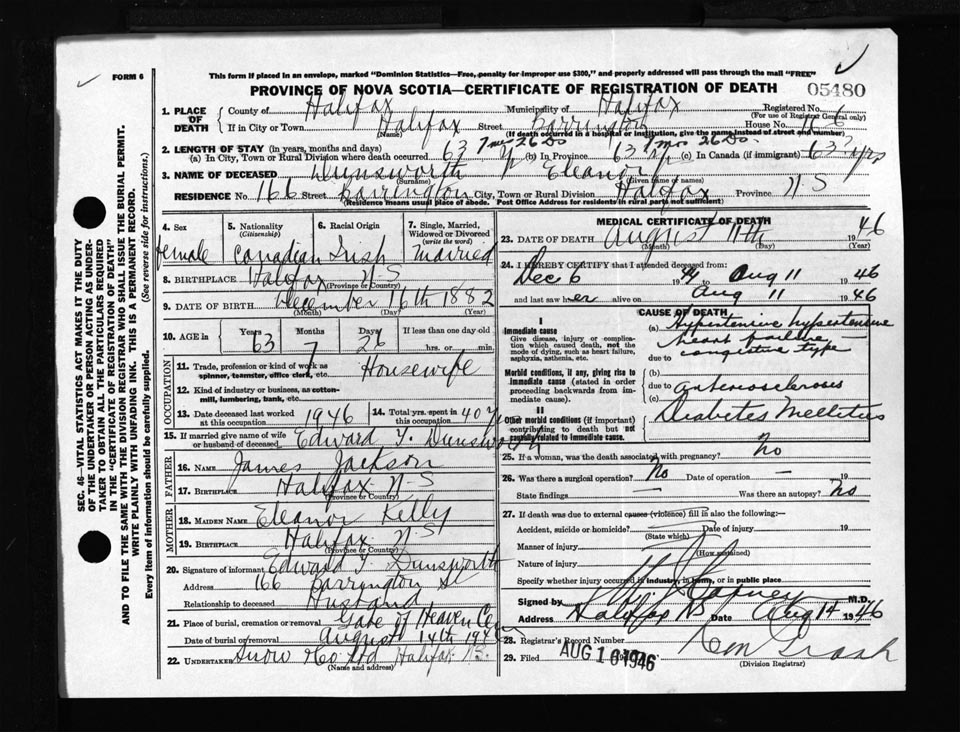 FORM 6
This form if placed in an envelope, marked "Dominion Statistics—Free, penalty for improper use $300," and properly addressed will pass through the mail "FREE"
PROVINCE OF NOVA SCOTIA—CERTIFICATE OF REGISTRATION OF DEATH
05480
1. PLACE OF DEATH
County of Halifax Municipality of Halifax Registered No.
(For use of Registrar General only)
If in City or Town Halifax Street Barrington House No.
(Name) (If death occurred in a hospital or institution, give the name instead of street and number)
2. LENGTH OF STAY (in years, months and days)
(a) In City, Town or Rural Division where death occurred 63 7 mos 26 Ds (b) In Province 63 7 mos 26 Ds (c) In Canada (if immigrant) 63 yrs
3. NAME OF DECEASED Dunsworth Eleanor
(Surname) (Given name or names)
RESIDENCE No. 166 Street Barrington City, Town or Rural Division Halifax Province N.S
(Residence means usual place of abode. Post Office Address for residents in rural parts not sufficient)
4. Sex female
5. Nationality (Citizenship) Canadian
6. Racial Origin Irish
7. Single, Married, Widowed or Divorced (write the word) Married
8. BIRTHPLACE Halifax N-S
(Province or Country)
9. DATE OF BIRTH December 16th 1882
(Month) (Day) (Year)
10. AGE in Years 63 Months 7 Days 26 If less than one day old
hrs. or min.
OCCUPATION
11. Trade, profession or kind of work as spinner, teamster, office clerk, etc. Housewife
12. Kind of industry or business, as cotton-mill, lumbering, bank, etc.
13. Date deceased last worked at this occupation 1946
14. Total yrs. spent in this occupation 40
15. If married give name of wife or husband of deceased Edward T. Dunsworth
FATHER
16. NAME James Jackson
17. BIRTHPLACE Halifax N-S
(Province or Country)
MOTHER
18. MAIDEN NAME Eleanor Kelly
19. BIRTHPLACE Halifax N-S
(Province or Country)
20. Signature of informant Edward T. Dunsworth
Address 166 Barrington St
Relationship to deceased Husband
21. Place of burial, cremation or removal Gate of Heaven Cem
Date of burial or removal August 14th 194
22. UNDERTAKER Snow & Co Ltd Halifax N.S.
(Name and address)
MEDICAL CERTIFICATE OF DEATH
23. DATE OF DEATH August 11th 1946
(Month) (Day) (Year)
24. I HEREBY CERTIFY that I attended deceased from:
Dec 6 19 to Aug 11 1946
and last saw her alive on Aug 11 1946
CAUSE OF DEATH
I
Immediate cause
Give disease, injury or complication which caused death, not the mode of dying, such as heart failure, asphyxia, asthenia, etc.
(a) Hypertensive hypertensive
heart failure
due to congestive type
Morbid conditions, if any, giving rise to immediate cause (stated in order proceeding backwards from immediate cause).
(b)
due to arteriosclerosis
(c)
II
Other morbid conditions (if important) contributing to death but not causally related to immediate cause.
Diabetes Mellitus
25. If a woman, was the death associated with pregnancy? No
26. Was there a surgical operation? No Date of operation 19
State findings — Was there an autopsy? No
27. If death was due to external causes (violence) fill in also the following:—
Accident, suicide or homicide? Date of injury 19
(State which)
Manner of injury
(How sustained)
Nature of injury
Specify whether injury occurred in industry, in home, or in public place
Signed by M.D.
Address Halifax NS Date Aug 14 1946
28. Registrar's Record Number
29. Filed AUG 16 1946
(Division Registrar)
SEC. 46—VITAL STATISTICS ACT MAKES IT THE DUTY
OF THE UNDERTAKER OR PERSON ACTING AS UNDERTAKER TO OBTAIN ALL THE PARTICULARS REQUIRED
IN THE "CERTIFICATE OF REGISTRATION OF DEATH"
AND TO FILE THE SAME WITH THE DIVISION REGISTRAR WHO SHALL ISSUE THE BURIAL PERMIT.
WRITE PLAINLY WITH UNFADING INK. THIS IS A PERMANENT RECORD.
Every item of information should be carefully supplied. (See reverse side for instructions.)